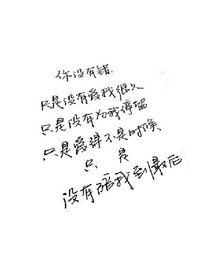 你没有错
只是没有爱我很久
只是没有为我停留
只是爱得不是时候
只是
没有陪我到最后